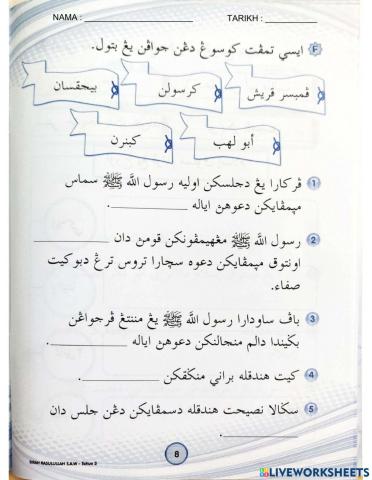 NAMA : TARIKH :
F ايسي تمڤت كوسوڠ دڠن جواڤن يڠ بتول.
ڤمبسر قريش
كرسولن
بيجقسان
أبو لهب
كبنرن
1 ڤركارا يڠ دجلسكن اوليه رسول الله ﷺ سماس
مڽمڤايكن دعوهڽ اياله .
2 رسول الله ﷺ مڠهيمڤونكن قومڽ دان
اونتوق مڽمڤايكن دعوه سچارا تروس ترڠ دبوكيت
صفاء.
3 باڤ ساودارا رسول الله ﷺ يڠ مننتڠ ڤرجواڠن
بڬيندا دالم منجالنكن دعوهڽ اياله .
4 كيت هندقله براني منڬقكن .
5 سڬالا نصيحت هندقله دسمڤايكن دڠن جلس دان
.
SIRAH RASULULLAH S.A.W - Tahun 3
8
LIVEWORKSHEETS